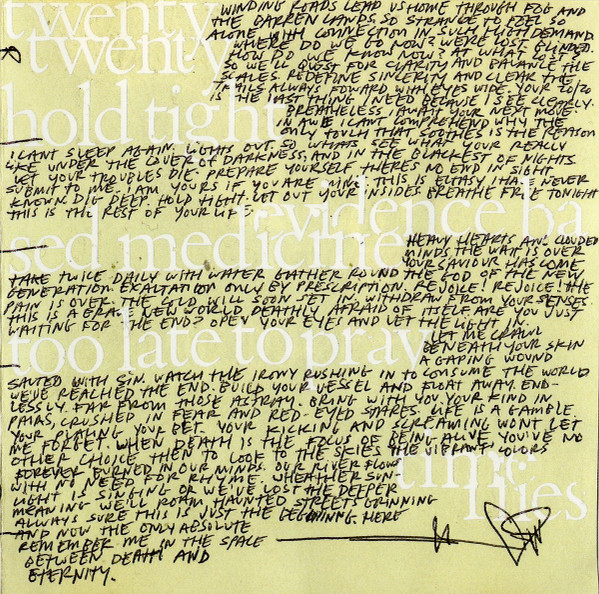 twenty
twenty
WINDING ROADS LEAD US HOME THROUGH FOG AND
THE BARREN LANDS. SO STRANGE TO FEEL SO
ALONE WITH CONNECTION IN SUCH HIGH DEMAND.
WHERE DO WE GO NOW? WE'RE LOST BLINDED.
HOW DO WE KNOW NOW? AT WHAT COSTS
SO WE'LL QUEST FOR CLARITY AND BALANCE THE
SCALES. REDEFINE SINCERITY AND CLEAR THE
TRAILS ALWAYS FOWARD WITH EYES WIDE. YOUR 20/20
IS THE LAST THING I NEED BECAUSE I SEE CLEARLY.
hold tight
BREATHELESS, I AWAIT YOUR NEXT MOVE.
IN AWE I CANT COMPREHEND WHY THE
ONLY TOUCH THAT SOOTHES IS THE REASON
I CANT SLEEP AGAIN. LIGHTS OUT. SO WHATS SEE WHAT YOUR REALLY
LIKE UNDER THE COVER OF DARKNESS, AND IN THE BLACKEST OF NIGHTS
LET YOUR TROUBLES DIE. PREPARE YOURSELF THERES NO END IN SIGHT
SUBMIT TO ME. I AM YOURS IF YOU ARE MINE. THIS IS EXTASY I HAVE NEVER
KNOWN. DIG DEEP. HOLD TIGHT. LET OUT YOUR INSIDES BREATHE FREE TONIGHT
THIS IS THE REST OF YOUR LIFE.
evidence ba
sed medicine
HEAVY HEARTS AND CLOUDED
MINDS THE WAIT IS OVER
YOUR SAVIOUR HAS COME
TAKE TWICE DAILY WITH WATER GATHER ROUND THE GOD OF THE NEW
GENERATION. EXALTATION ONLY BY PRESCRIPTION. REJOICE! REJOICE! THE
PAIN IS OVER. THE COLD WILL SOON SET IN. WITHDRAW FROM YOUR SENSES.
THIS IS A BRAVE NEW WORLD DEATHLY AFRAID OF ITSELF. ARE YOU JUST
WAITING FOR THE END? OPEN YOUR EYES AND LET THE LIGHT IN.
too late to pray
LET ME CRAWL
BENEATH YOUR SKIN
A GAPING WOUND
SALTED WITH SIN. WATCH THE IRONY RUSHING IN TO CONSUME THE WORLD
WE'VE REACHED THE END. BUILD YOUR VESSEL AND FLOAT AWAY. END-
LESSLY. FAR FROM THOSE ASTRAY. BRING WITH YOU YOUR KIND IN
PAIRS, CRUSHED IN FEAR AND RED-EYED STARES. LIFE IS A GAMBLE.
YOUR PLAYING YOUR BET. YOUR KICKING AND SCREAMING WONT LET
ME FORGET. WHEN DEATH IS THE FOCUS OF BEING ALIVE, YOU'VE NO
OTHER CHOICE THEN TO LOOK TO THE SKIES
time
flies
THE VIBRANT COLORS
FOREVER BURNED IN OUR MINDS. OUR RIVER FLOWS
WITH NO NEED FOR RHYME. WHEATHER SUN-
LIGHT IS SINGING OR WE'VE LOST THE DEEPER
MEANING WE'LL ROAM HAUNTED STREETS GRINNING
ALWAYS SURE THIS IS JUST THE BEGINNING. HERE
AND NOW THE ONLY ABSOLUTE
REMEMBER ME IN THE SPACE
BETWEEN DEATH AND
ETERNITY.